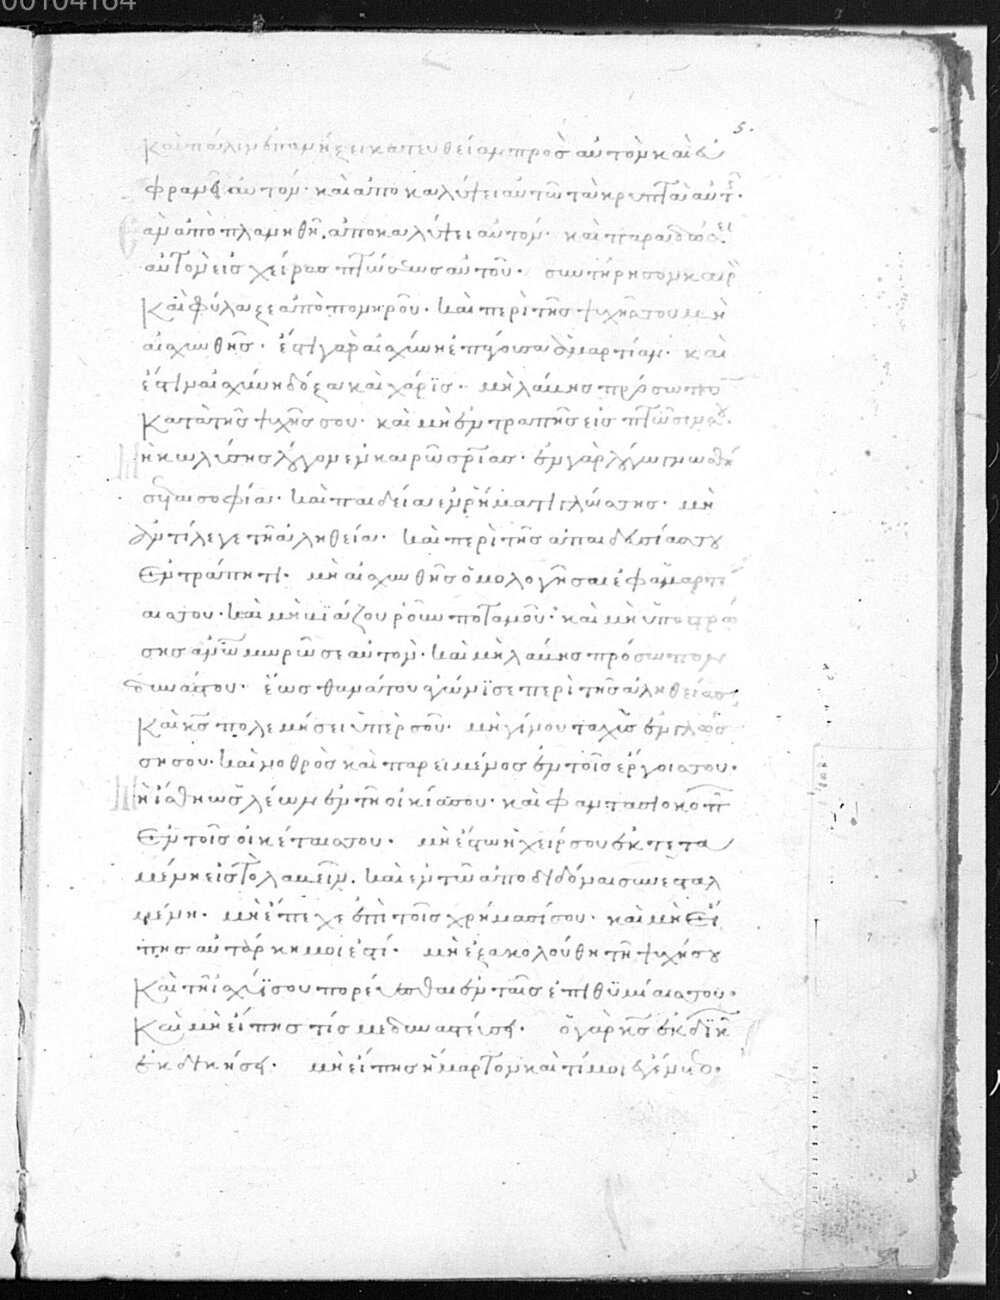 00104164
5.
καὶ πάλιν ἐπανήξει κατευθεῖαν πρὸς αὐτὸν καὶ εὐ
φρανεῖ αὐτόν· καὶ ἀποκαλύψει αὐτῶ τὰ κρυπτὰ αὐτ·
ἐὰν ἀποπλανηθῆ, ἀποκαλύψει αὐτόν· καὶ παραδώσει
αὐτὸν εἰς χεῖρας πτώσεως αὐτοῦ· συντήρησον καιρ
καὶ φύλαξε ἀπὸ πονηροῦ· καὶ περὶ τῆς ψυχῆς σου μὴ
αἰσχυνθῆς· ἔστι γὰρ αἰσχύνη ἐπάγουσα ἁμαρτίαν· καὶ
ἔστιν αἰσχύνη δόξα καὶ χάρϊς· μὴ λάβης πρόσωπο
κατὰ τῆς ψυχῆς σου· καὶ μὴ ἐντραπῆς εἰς πτῶσιν σου·
μὴ κωλύσης λόγον ἐν καιρῶ σρίας· ἐν γὰρ λόγω γνωσθή
σεται σοφία· καὶ παιδεία ἐν ῥήματι γλώσσης· μὴ
ἀντίλεγε τῆ ἀληθεία· καὶ περὶ τῆς ἀπαιδευσίας σου
ἐντράπητι· μὴ αἰσχυνθῆς ὁμολογῆσαι ἐφ ἁμαρτί
αις σου· καὶ μὴ βιάζου ῥοῦν ποταμοῦ· καὶ μὴ ὑποστρώ
σης ἀνω μωρῶ σεαυτόν· καὶ μὴ λάβης πρόσωπον
δυνάστου· ἕως θανάτου ἀγώνϊσε περὶ τῆς ἀληθείας·
καὶ κς πολεμήσει ὑπὲρ σοῦ· μὴ γίνου ταχὺς ἐν γλώσ
ση σου· καὶ νοθρὸς καὶ παρειμένος ἐν τοῖς ἔργοις σου·
μὴ ἴσθη ὡς λέων ἐν τῆ οἰκία σου· καὶ φαντασιοκοπ
ἐν τοῖς οἰκέταις σου· μὴ ἔστω ἡ χείρ σου ἐκτετα
μένη εἰς τὸ λαβεῖν· καὶ ἐν τῶ ἀποδιδόναι συνεσταλ
μένη· μὴ ἔπεχε ἐπὶ τοῖς χρήμασί σου· καὶ μὴ εἴ
πης αὐτάρκη μοι ἐστί· μὴ ἐξακολούθη τῆ ψυχῆ σου
καὶ τῆ ἰσχύϊ σου πορεύεσθαι ἐν ταῖς ἐπιθυμίαις σου·
καὶ μὴ εἴπης τίς με δυναστεύσει· ὁ γὰρ κς ἐκδικ
ἐκδικήσει· μὴ εἴπης ἥμαρτον καὶ τί μοι ἐγένετο·